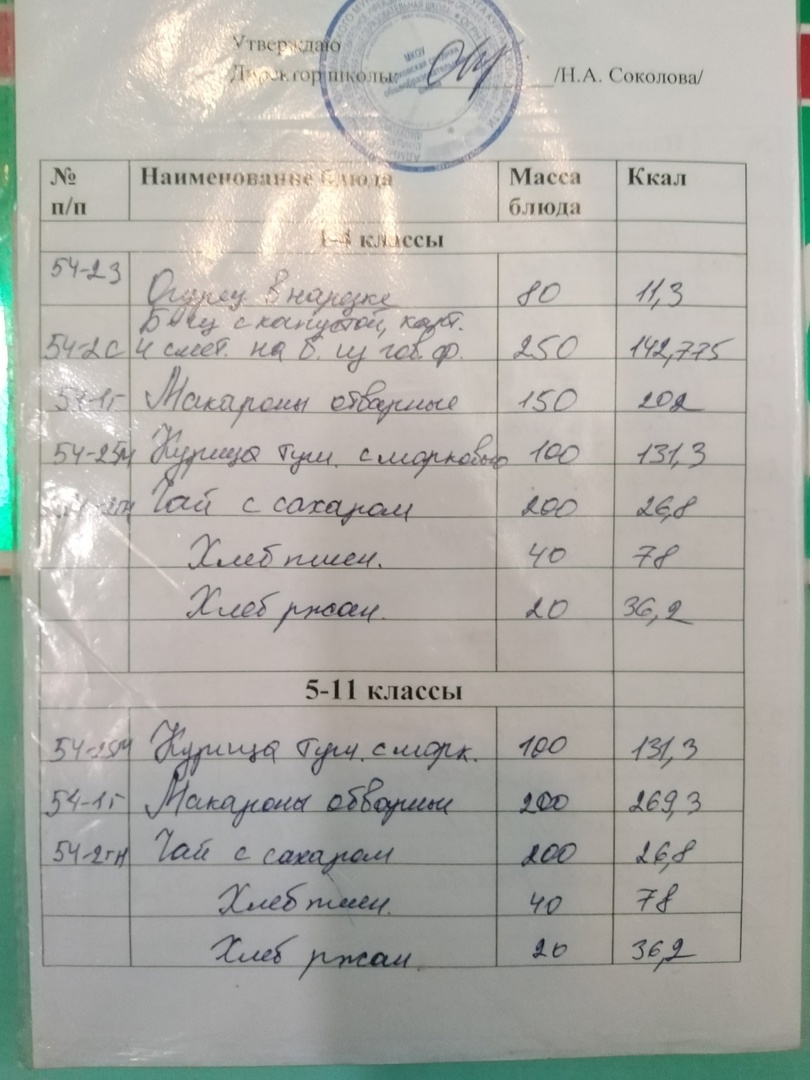 Утверждаю
Директор школы /Н.А. Соколова/
№ п/п Наименование блюда Масса блюда Ккал
1-4 классы
54-2з Огурец в нарезке 80 11,3
с капустой, карт.
54-2с и смет. на б. из гов. ф. 250 142,775
54-1г Макароны отварные 150 202
54-25м Курица туш. с морковью 100 131,3
Чай с сахаром 200 26,8
Хлеб пшен. 40 78
Хлеб ржан. 20 36,2
5-11 классы
54-25м Курица туш. с морк. 100 131,3
54-1г Макароны отварные 200 269,3
54-2гн Чай с сахаром 200 26,8
Хлеб пшен. 40 78
Хлеб ржан 20 36,2